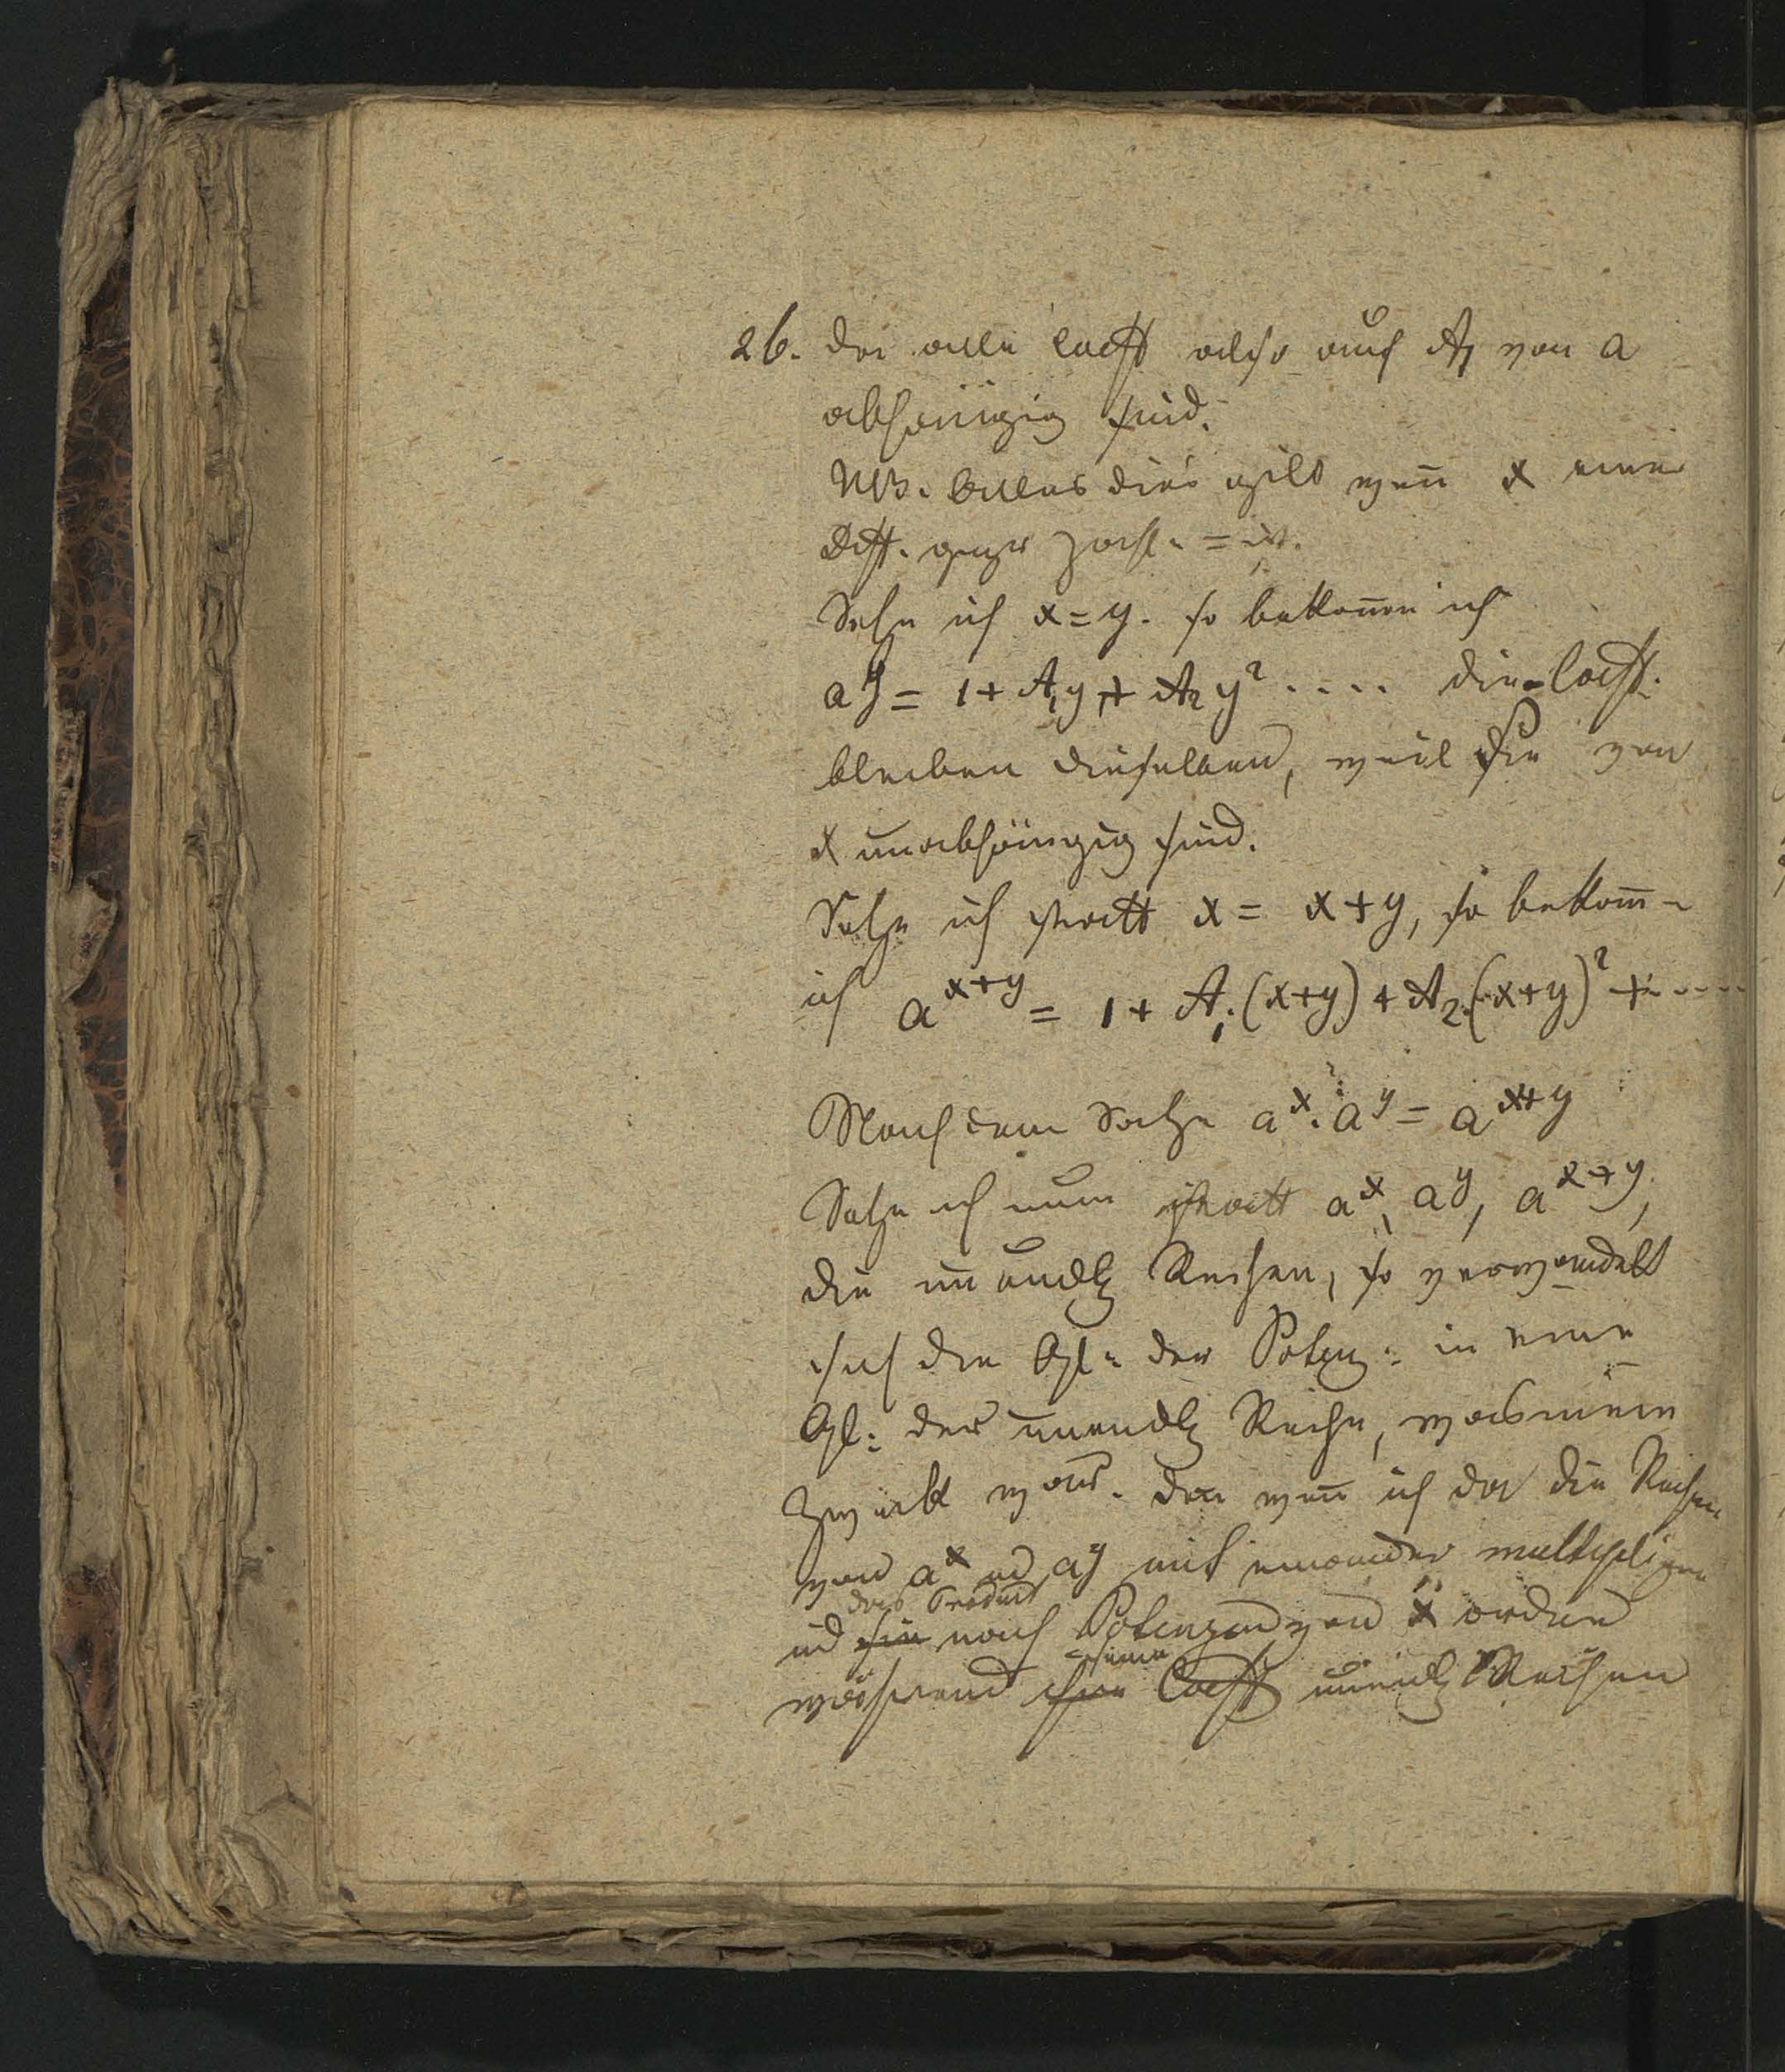 26. da alle Coeff also auch A₁ von a
abhängig sind.
NB. Alles dies gilt weñ x eine
pos. ganze Zahl. = ist.
Setze ich x = y. so bekom̄en ich
a^y = 1 + A₁y + A₂y² .... die Coeff.
bleiben dieselben, weil sie von
x unabhängig sind.
Setze ich statt x = x+y, so bekom̄-
ich a^{x+y} = 1 + A₁.(x+y) + A₂.(x+y)² + ....
Nach dem Satze a^x . a^y = a^{x+y}
Setze ich nun statt a^x, a^y, a^{x+y},
die unendl Reihen, so verwandelt
sich die Gl: der Potenz: in eine
Gl: der unendl Reihe, was mein
Zweck war. Deñ weñ ich da die Reihen
von a^x ud a^y mit einander multiplizire
das Product
ud sie nach Potenzen von x ordne
seine
während ihre Coeff unendl Reihen